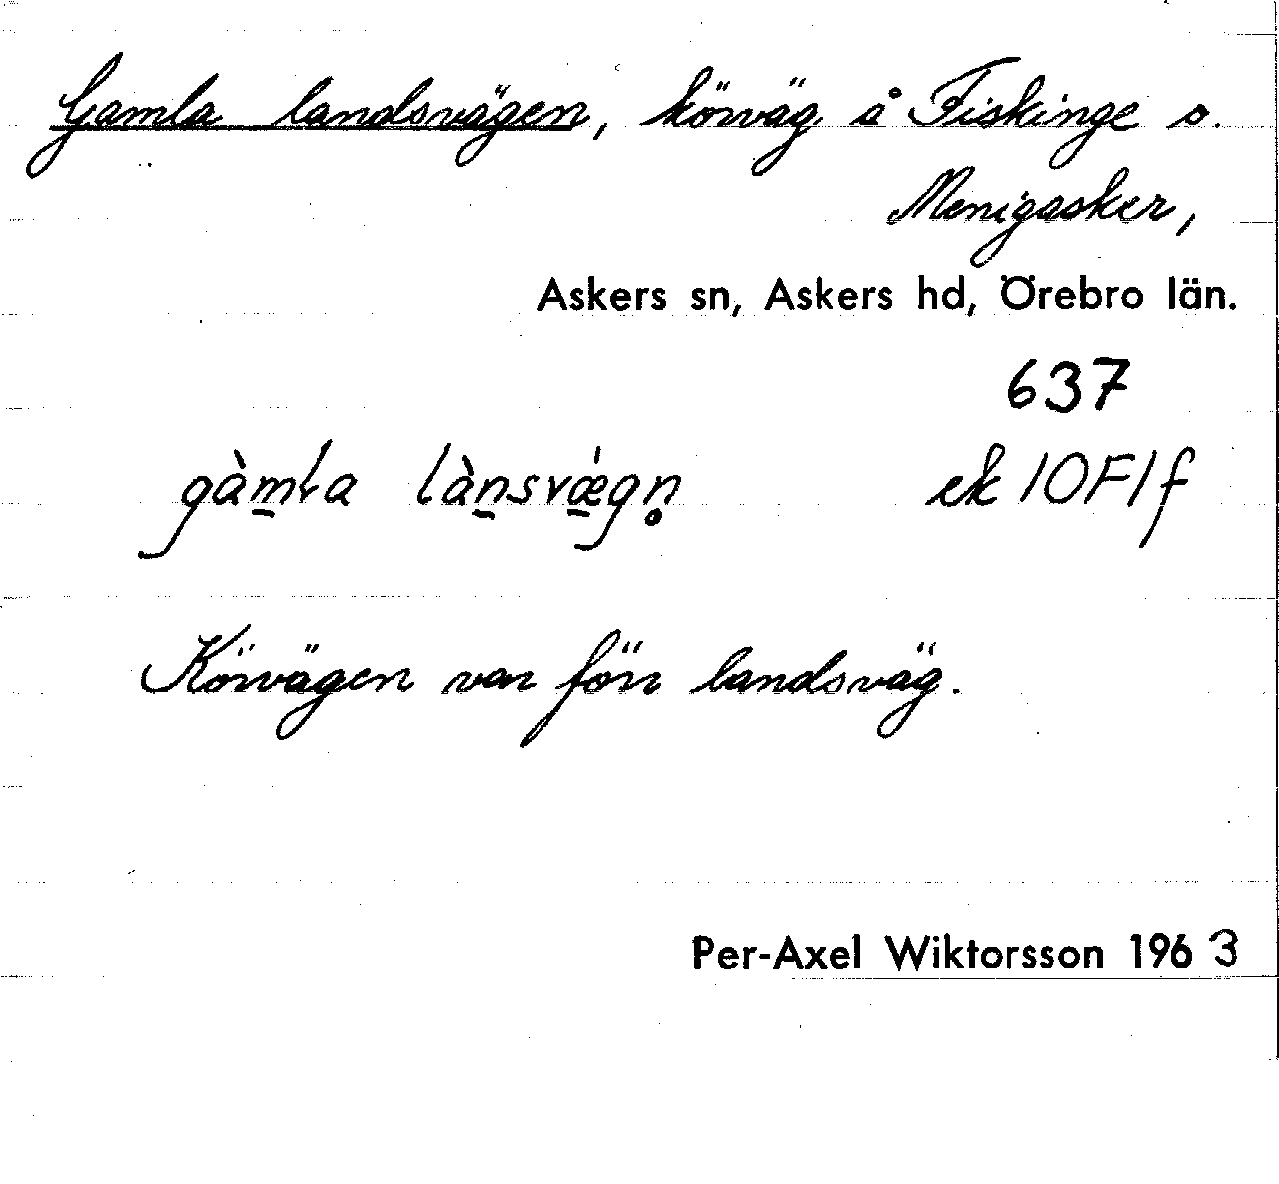 Gamla landsvägen, körväg å Fiskinge o.
Menigasker,
Askers sn, Askers hd, Örebro län.
637
gàmla lànsvæ̍gn̥ ek 10F1f
Körvägen var förr landsväg.
Per-Axel Wiktorsson 1963